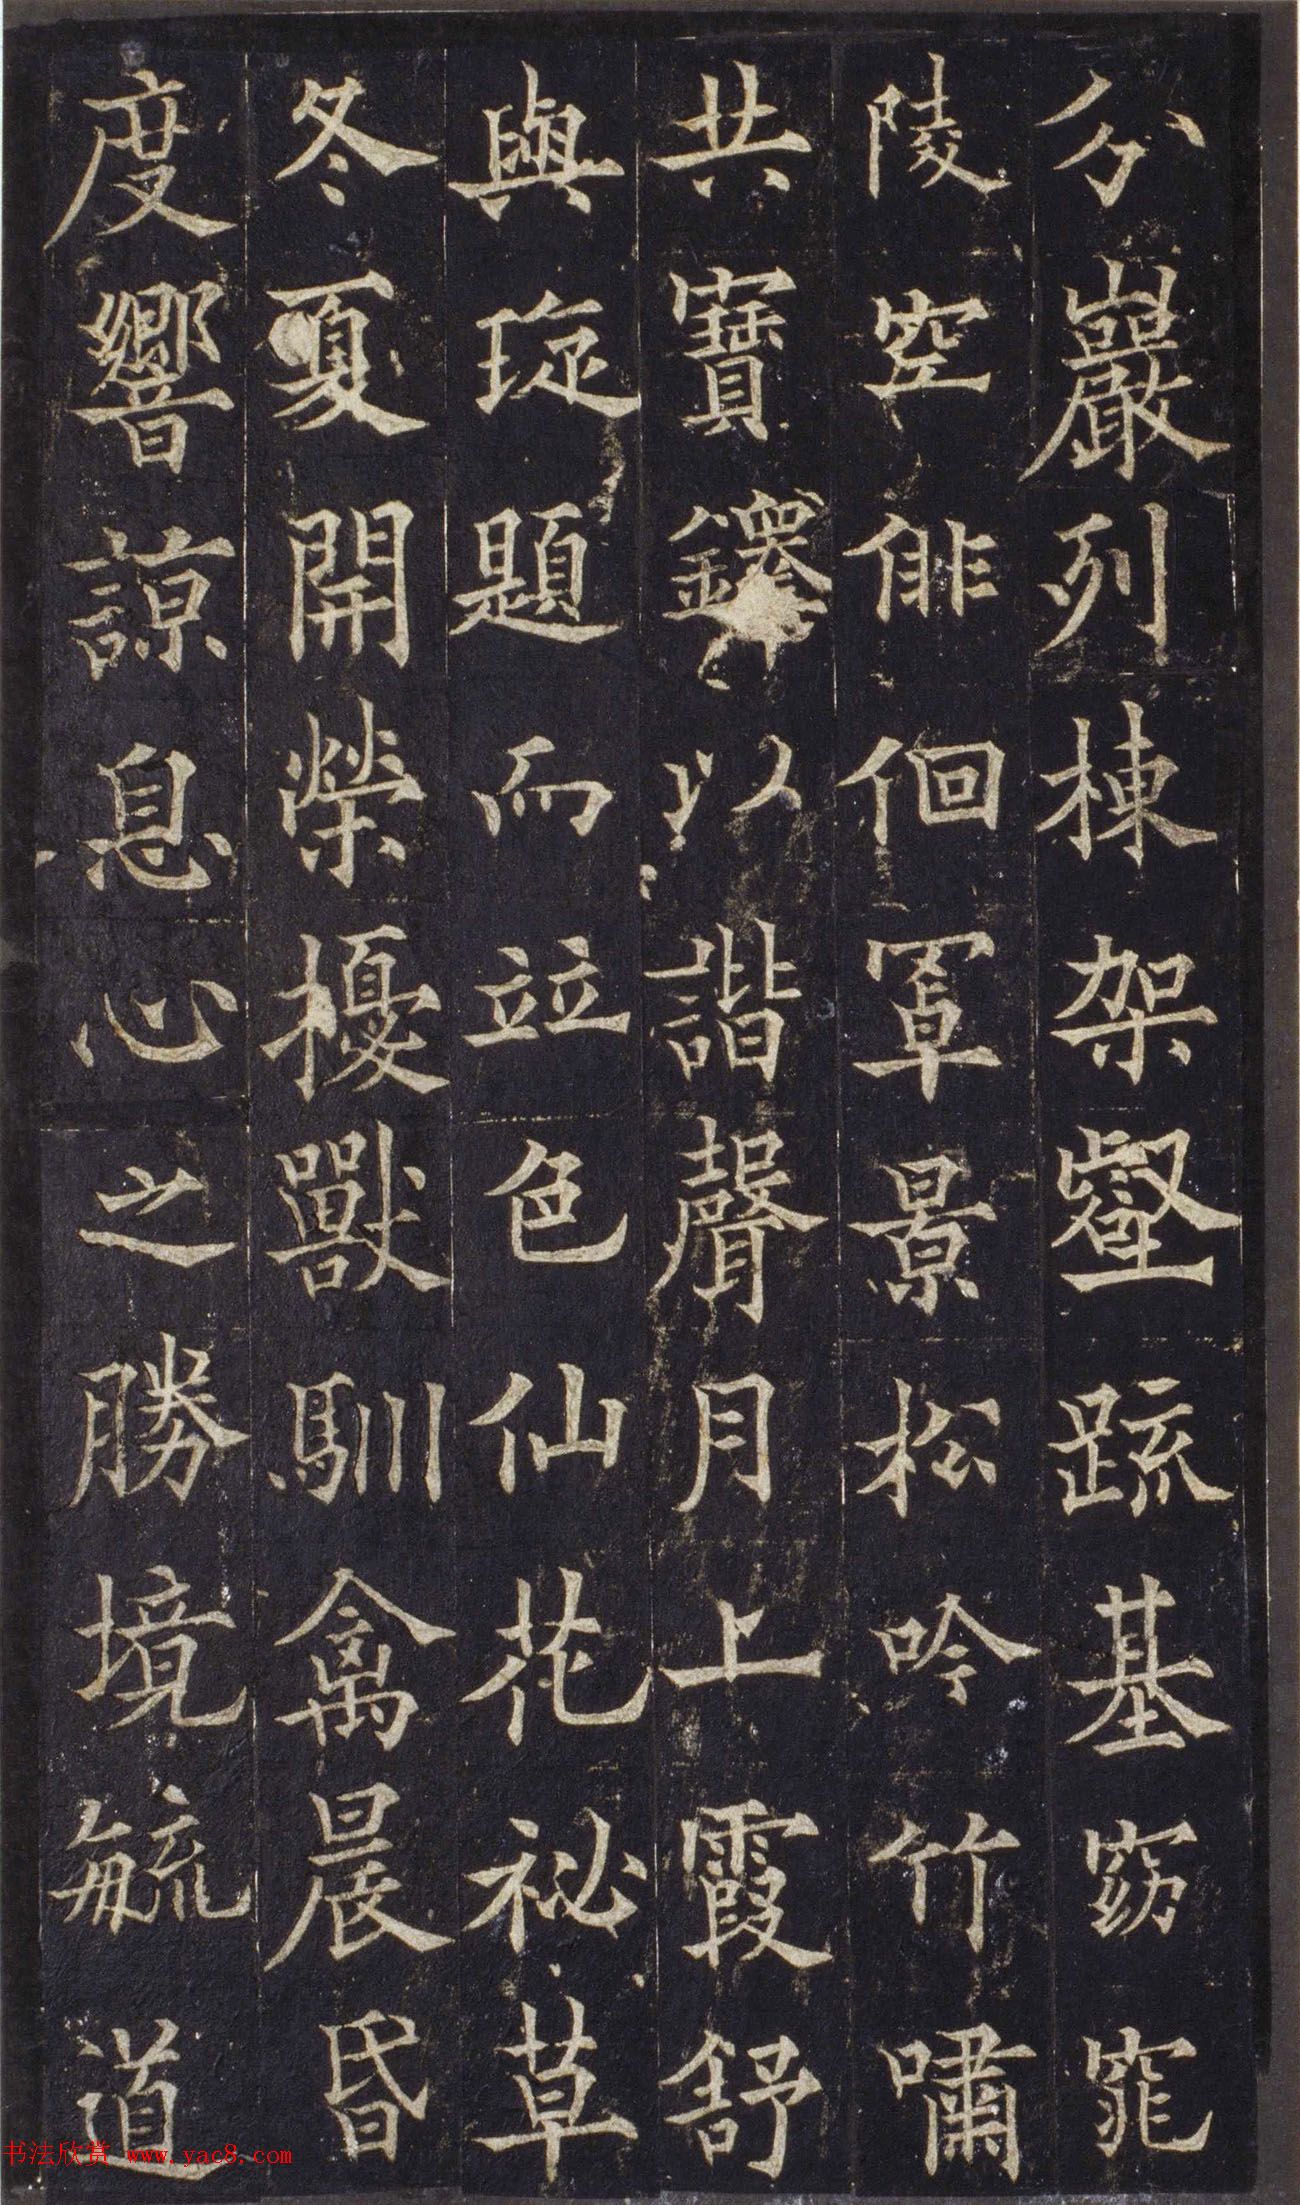 分巖列棟架壑疏基窈窕
陵空俳佪罩景松吟竹嘯
共寶鐸以諧聲月上霞舒
與琁題而竝色仙花祕草
冬夏開榮檴獸馴禽晨昏
度響諒息心之勝境毓道
书法欣赏 www.yac8.com